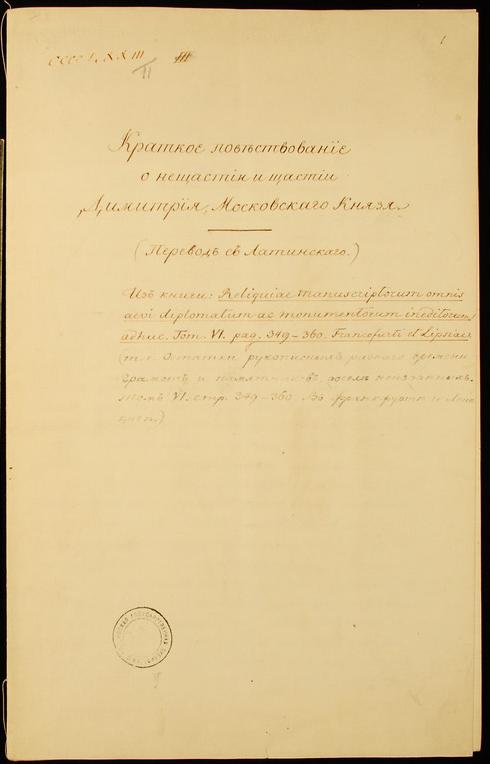 1
CCCCLXXIII
II III
Краткое повѣствованіе
о нещастіи и щастіи
Димитрія, Московскаго Князя.
(Переводъ съ Латинскаго.)
Изъ книги: Reliquiae manuscriptorum omnis
aevi diplomatum ac monumentorum ineditorum
adhuc. Tom. VI. pag. 349-360. Francofurti et Lipsiae
(т. е. Остатки рукописныхъ разнаго времени
грамотъ и памятниковъ, доселѣ неизданныхъ.
томъ VI. стр. 349-360. Во Франкфуртѣ и Лейп
цигѣ.)